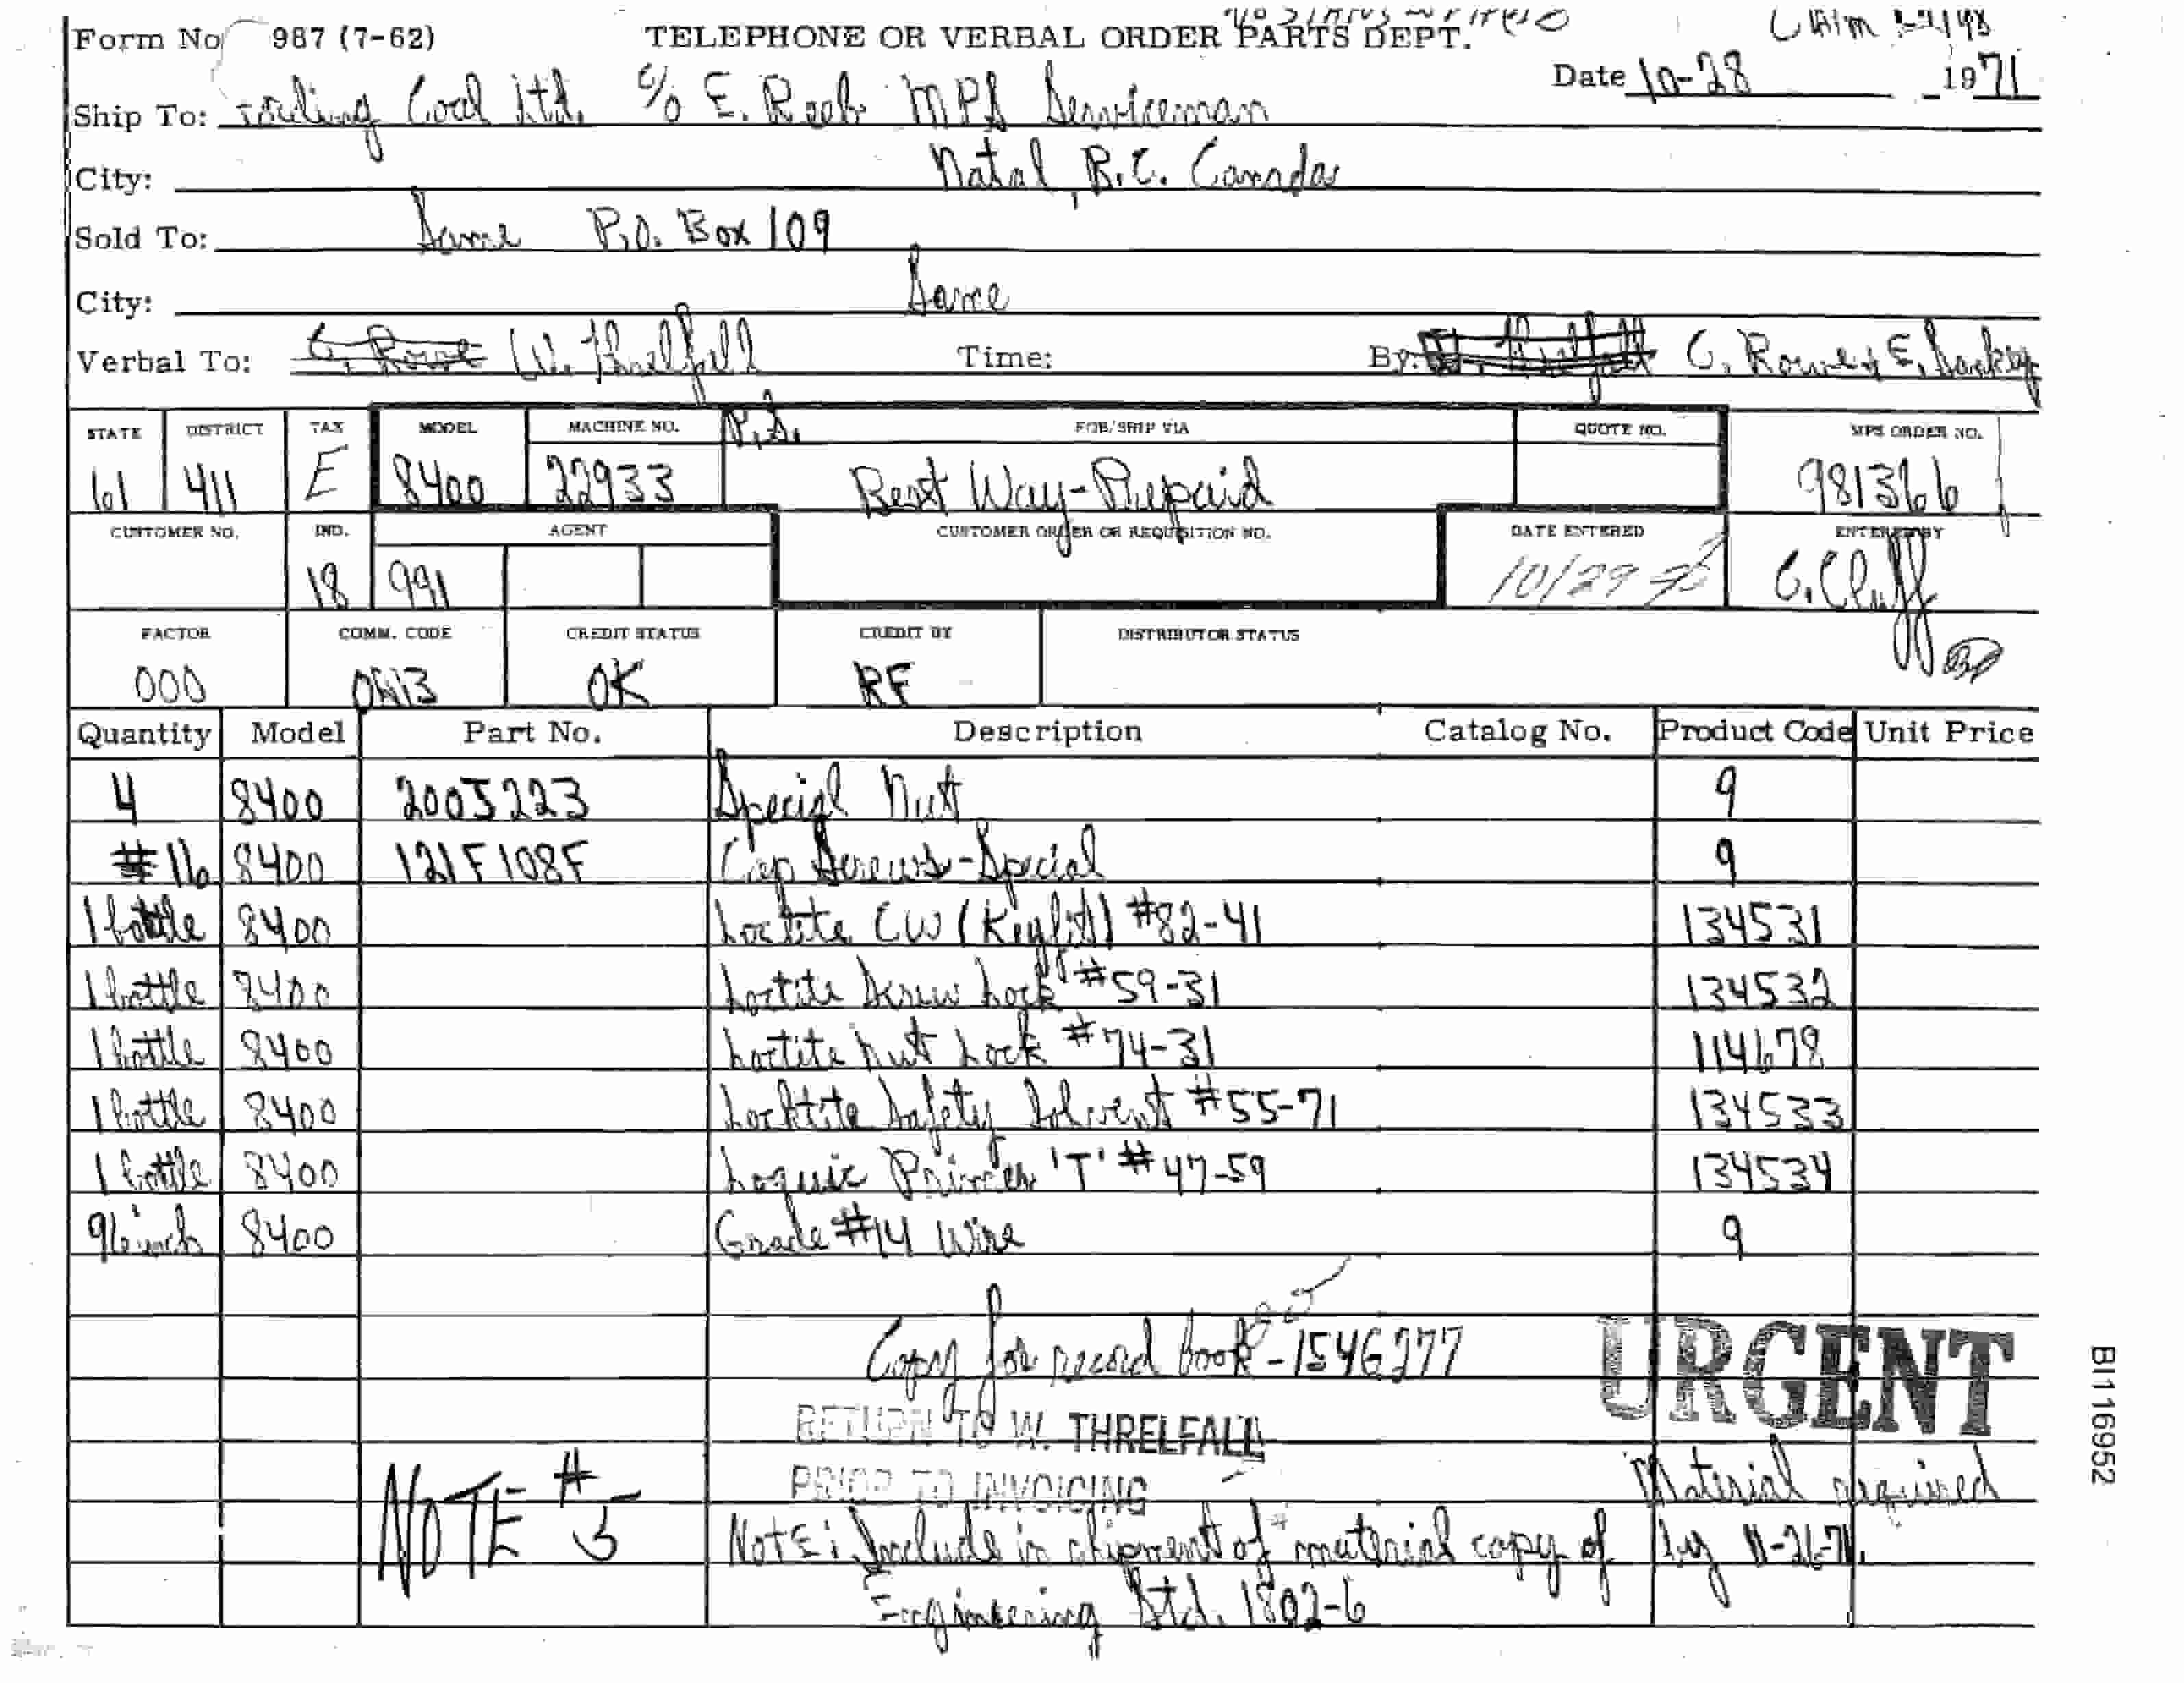 Form No 987 (7-62) TELEPHONE OR VERBAL ORDER PARTS DEPT. Claim
Date 10-28 1971
Ship To: Coal Ltd. c/o E. Reeb MPS Serviceman
City: Natal, B.C. Canada
Sold To: Same P.O. Box 109
City: Same
Verbal To: C. Rowe W. Threlfall Time: By: W. Threlfall C. Rowe + E.
STATE DISTRICT TAX MODEL MACHINE NO. P.S. FOB/SHIP VIA QUOTE NO. MPS ORDER NO.
61 411 E 8400 22933 Best Way-Prepaid 981366
CUSTOMER NO. IND. AGENT CUSTOMER ORDER OR REQUISITION NO. DATE ENTERED ENTERED BY
18 991 10/29 C. Cluff
FACTOR COMM. CODE CREDIT STATUS CREDIT BY DISTRIBUTOR STATUS
000 OK RF
Quantity Model Part No. Description Catalog No. Product Code Unit Price
4 8400 200J223 Special Nut 9
#16 8400 121F108F Cap Screws-Special 9
1 bottle 8400 Loctite CW (Keyfit) #82-41 134531
1 bottle 8400 Loctite Screw Lock #59-31 134532
1 bottle 8400 Loctite Nut Lock #74-31 114678
1 bottle 8400 Locktite Safety Solvent #55-71 134533
1 bottle 8400 Loquic Primer 'T' #47-59 134534
96 inch 8400 Grade #14 Wire 9
Copy for record book - 1546277
URGENT
RETURN TO W. THRELFALL
PRIOR TO INVOICING
Material required
by 11-26-71.
NOTE #5
NOTE: Include in shipment of material copy of
Engineering Std. 1802-6
BI116952